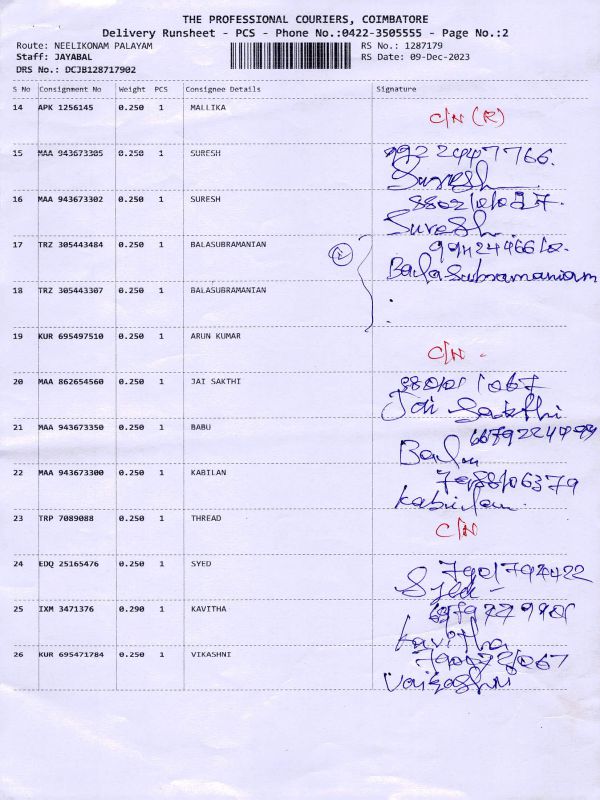 THE PROFESSIONAL COURIERS, COIMBATORE
Delivery Runsheet - PCS - Phone No.:0422-3505555 - Page No.:2
Route: NEELIKONAM PALAYAM RS No.: 1287179
Staff: JAYABAL RS Date: 09-Dec-2023
DRS No.: DCJB128717902
S No Consignment No Weight PCS Consignee Details Signature
14 APK 1256145 0.250 1 MALLIKA C/N (R)
15 MAA 943673305 0.250 1 SURESH 9922447766.
Suresh
16 MAA 943673302 0.250 1 SURESH
Suresh.
17 TRZ 305443484 0.250 1 BALASUBRAMANIAN
Balasubramaniam
18 TRZ 305443307 0.250 1 BALASUBRAMANIAN
19 KUR 695497510 0.250 1 ARUN KUMAR C/N -
20 MAA 862654560 0.250 1 JAI SAKTHI
Jai Sakthi
21 MAA 943673350 0.250 1 BABU
Babu
22 MAA 943673300 0.250 1 KABILAN
Kabilan.
23 TRP 7089088 0.250 1 THREAD C/N
24 EDQ 25165476 0.250 1 SYED
Syed -
25 IXM 3471376 0.290 1 KAVITHA
Kavitha
26 KUR 695471784 0.250 1 VIKASHNI